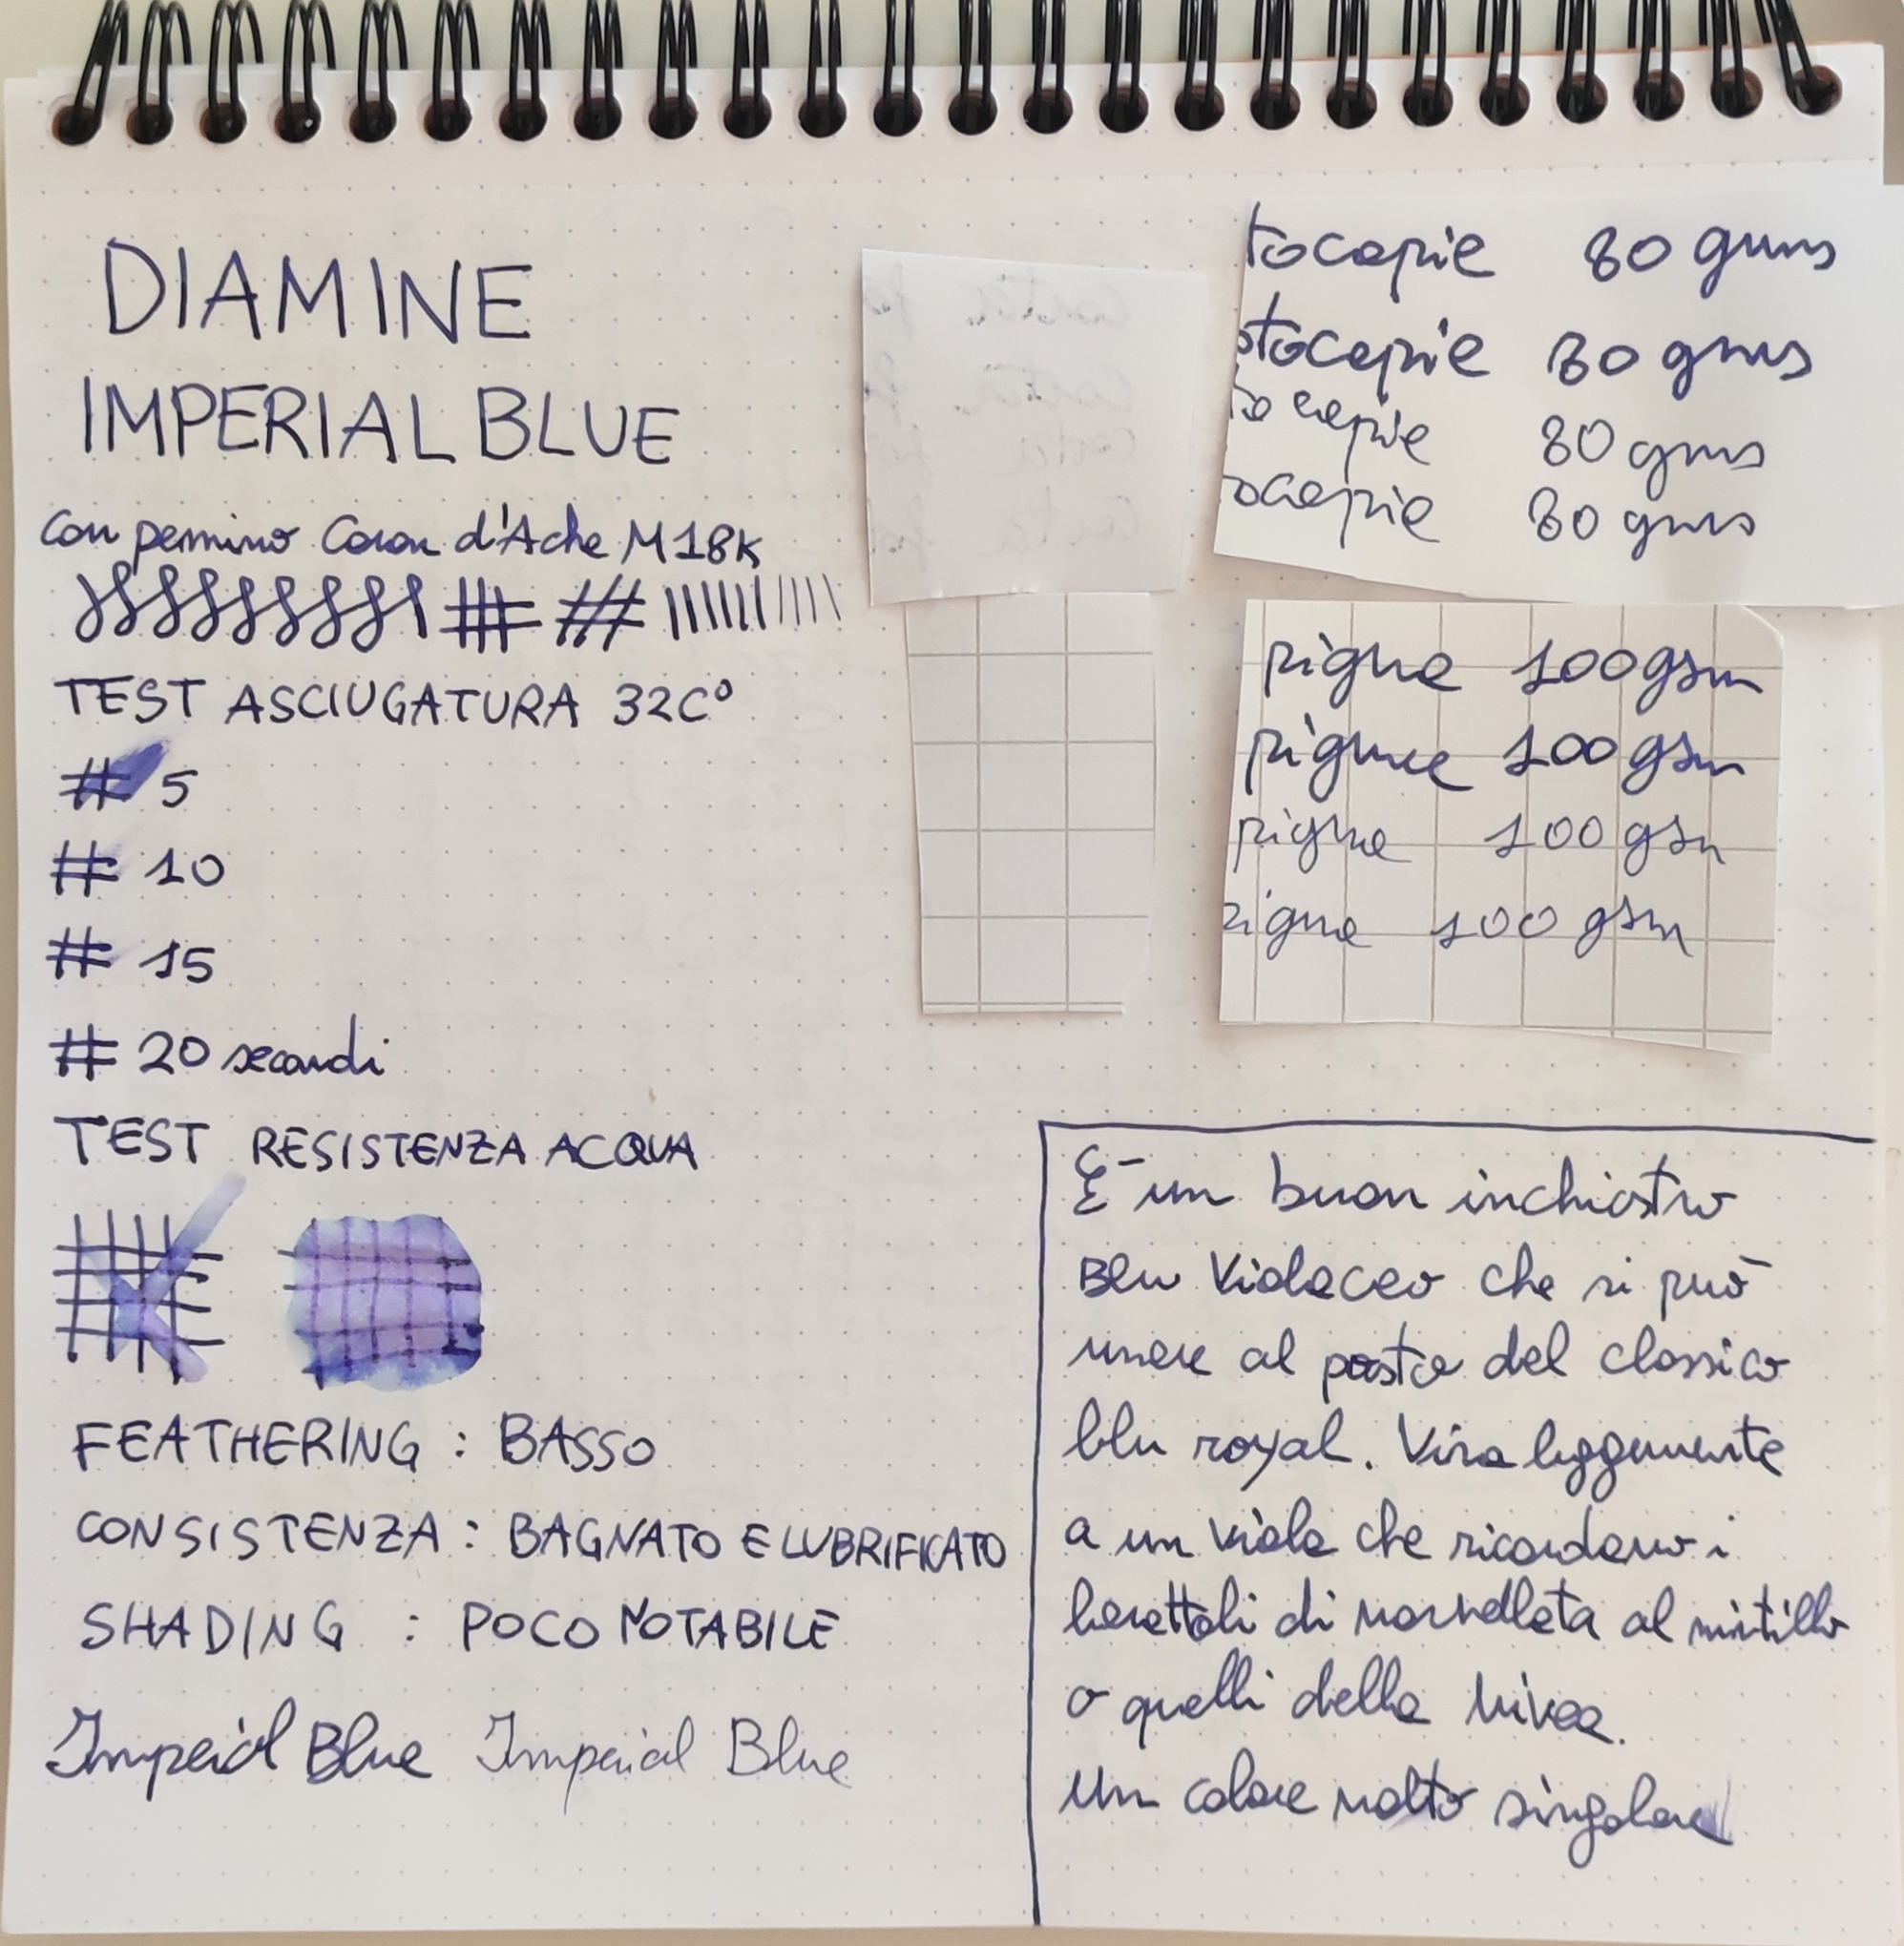 DIAMINE
IMPERIAL BLUE
con pennino Caran d'Ache M 18K
TEST ASCIUGATURA 32C°
# 5
# 10
# 15
# 20 secondi
TEST RESISTENZA ACQUA
FEATHERING : BASSO
CONSISTENZA : BAGNATO E LUBRIFICATO
SHADING : POCO NOTABILE
Imperial Blue Imperial Blue
tocopie 80 gms
otocopie 80 gms
tocopie 80 gms
ocopie 80 gms
pigna 100 gsm
pigna 100 gsm
pigna 100 gsm
pigna 100 gsm
È un buon inchiostro
Blu Violaceo che si può
usare al posto del classico
blu royal. Vira leggermente
a un viola che ricordano i
barattoli di marmellata al mirtillo
o quelli della Nivea.
Un colore molto singolare